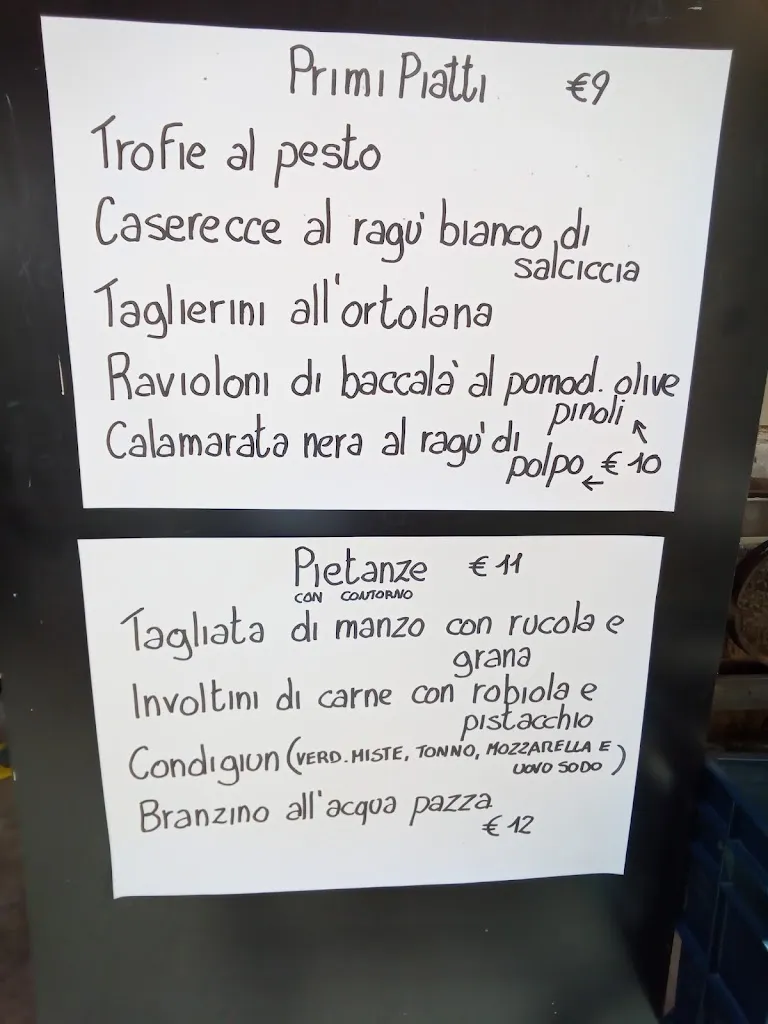 Primi Piatti €9
Trofie al pesto
Caserecce al ragu' bianco di
salciccia
Taglierini all'ortolana
Ravioloni di baccala' al pomod. olive
pinoli ↖
Calamarata nera al ragu' di
polpo ← € 10
Pietanze € 11
CON CONTORNO
Tagliata di manzo con rucola e
grana
Involtini di carne con robiola e
pistacchio
Condigiun (VERD. MISTE, TONNO, MOZZARELLA E
UOVO SODO)
Branzino all'acqua pazza
€ 12